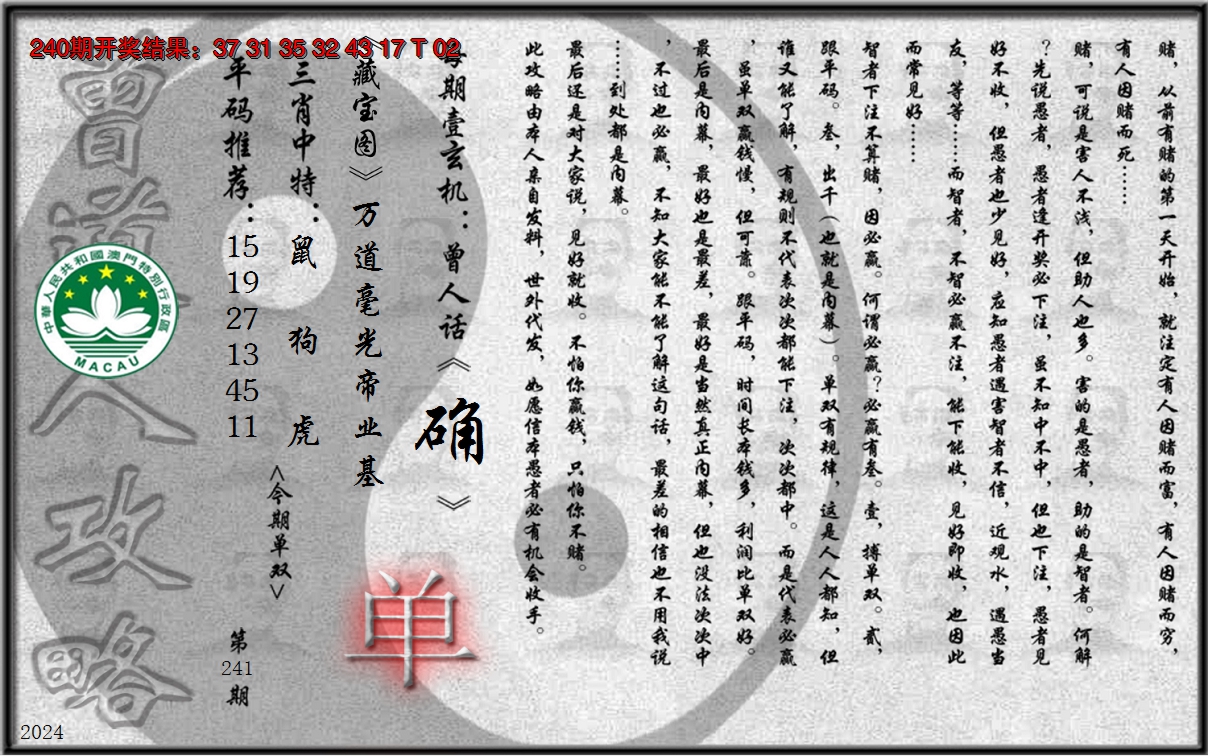 240期开奖结果：37 31 35 32 43 17 T 02
赌，从前有赌的第一天开始，就注定有人因赌而富，有人因赌而穷，
有人因赌而死……
赌，可说是害人不浅，但助人也多。害的是愚者，助的是智者。何解
？先说愚者，愚者逢开奖必下注，虽不知中不中，但也下注，愚者见
好不收，但愚者也少见好，应知愚者遇害智者不信，近观水，遇愚当
友，等等……而智者，不智必赢不注，能下能收，见好即收，也因此
而常见好……
智者下注不算赌，因必赢。何谓必赢？必赢有叁。壹，搏单双。贰，
跟平码。叁，出千（也就是内幕）。单双有规律，这是人人都知，但
谁又能了解，有规则不代表次次都能下注，次次都中。而是代表必赢
，虽单双赢钱慢，但可靠。跟平码，时间长本钱多，利润比单双好。
最后是内幕，最好也是最差，最好是当然真正内幕，但也没法次次中
，不过也必赢，不知大家能不能了解这句话，最差的相信也不用我说
……到处都是内幕。
最后还是对大家说，见好就收。不怕你赢钱，只怕你不赌。
此攻略由本人亲自发料，世外代发，如愿信本愚者必有机会收手。
每期壹玄机：曾人话《确》
《藏宝图》万道毫光帝业基
三肖中特：鼠 狗 虎
平码推荐：15 19 27 13 45 11
<今期单双>
单
第241期
曾道人攻略
中華人民共和國澳門特別行政區
MACAU
2024